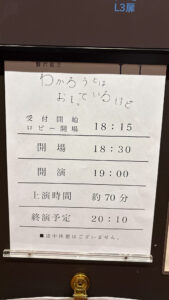 L3扉
わかろうとは
おもっているけど
受付開始
ロビー開場 18:15
開場 18:30
開演 19:00
上演時間 約70分
終演予定 20:10
■途中休憩はございません。